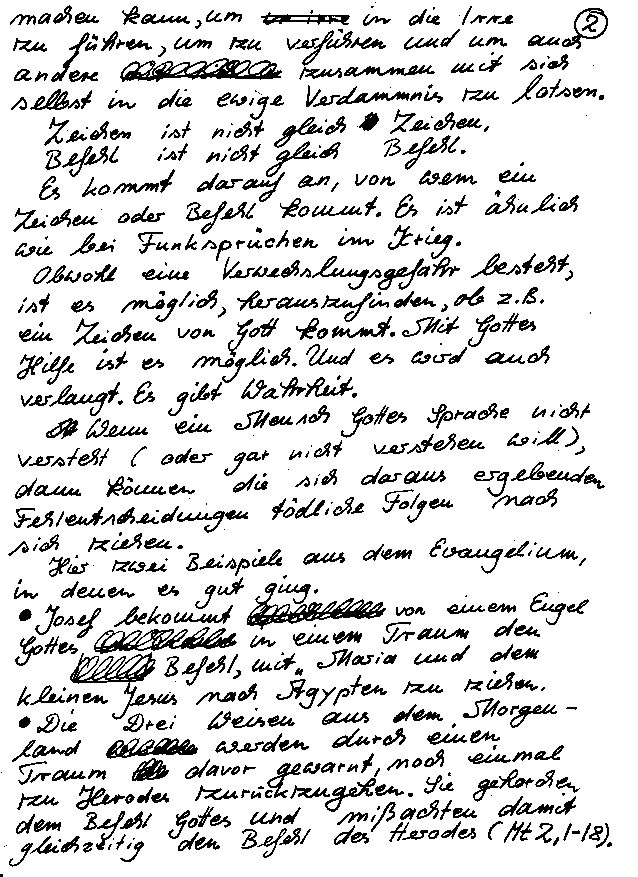 machen kann, um in die Irre
②
zu führen, um zu verführen und um auch
andere zusammen mit sich
selbst in die ewige Verdammnis zu lotsen.
Zeichen ist nicht gleich Zeichen.
Befehl ist nicht gleich Befehl.
Es kommt darauf an, von wem ein
Zeichen oder Befehl kommt. Es ist ähnlich
wie bei Funksprüchen im Krieg.
Obwohl eine Verwechslungsgefahr besteht,
ist es möglich, herauszufinden, ob z.B.
ein Zeichen von Gott kommt. Mit Gottes
Hilfe ist es möglich. Und es wird auch
verlangt. Es gibt Wahrheit.
Wenn ein Mensch Gottes Sprache nicht
versteht (oder gar nicht verstehen will),
dann können die sich daraus ergebenden
Fehlentscheidungen tödliche Folgen nach
sich ziehen.
Hier zwei Beispiele aus dem Evangelium,
in denen es gut ging.
• Josef bekommt von einem Engel
Gottes in einem Traum den
Befehl, mit Maria und dem
kleinen Jesus nach Ägypten zu ziehen.
• Die Drei Weisen aus dem Morgen-
land werden durch einen
Traum davor gewarnt, noch einmal
zu Herodes zurückzugehen. Sie gehorchen
dem Befehl Gottes und mißachten damit
gleichzeitig den Befehl des Herodes (Mt 2,1-18).